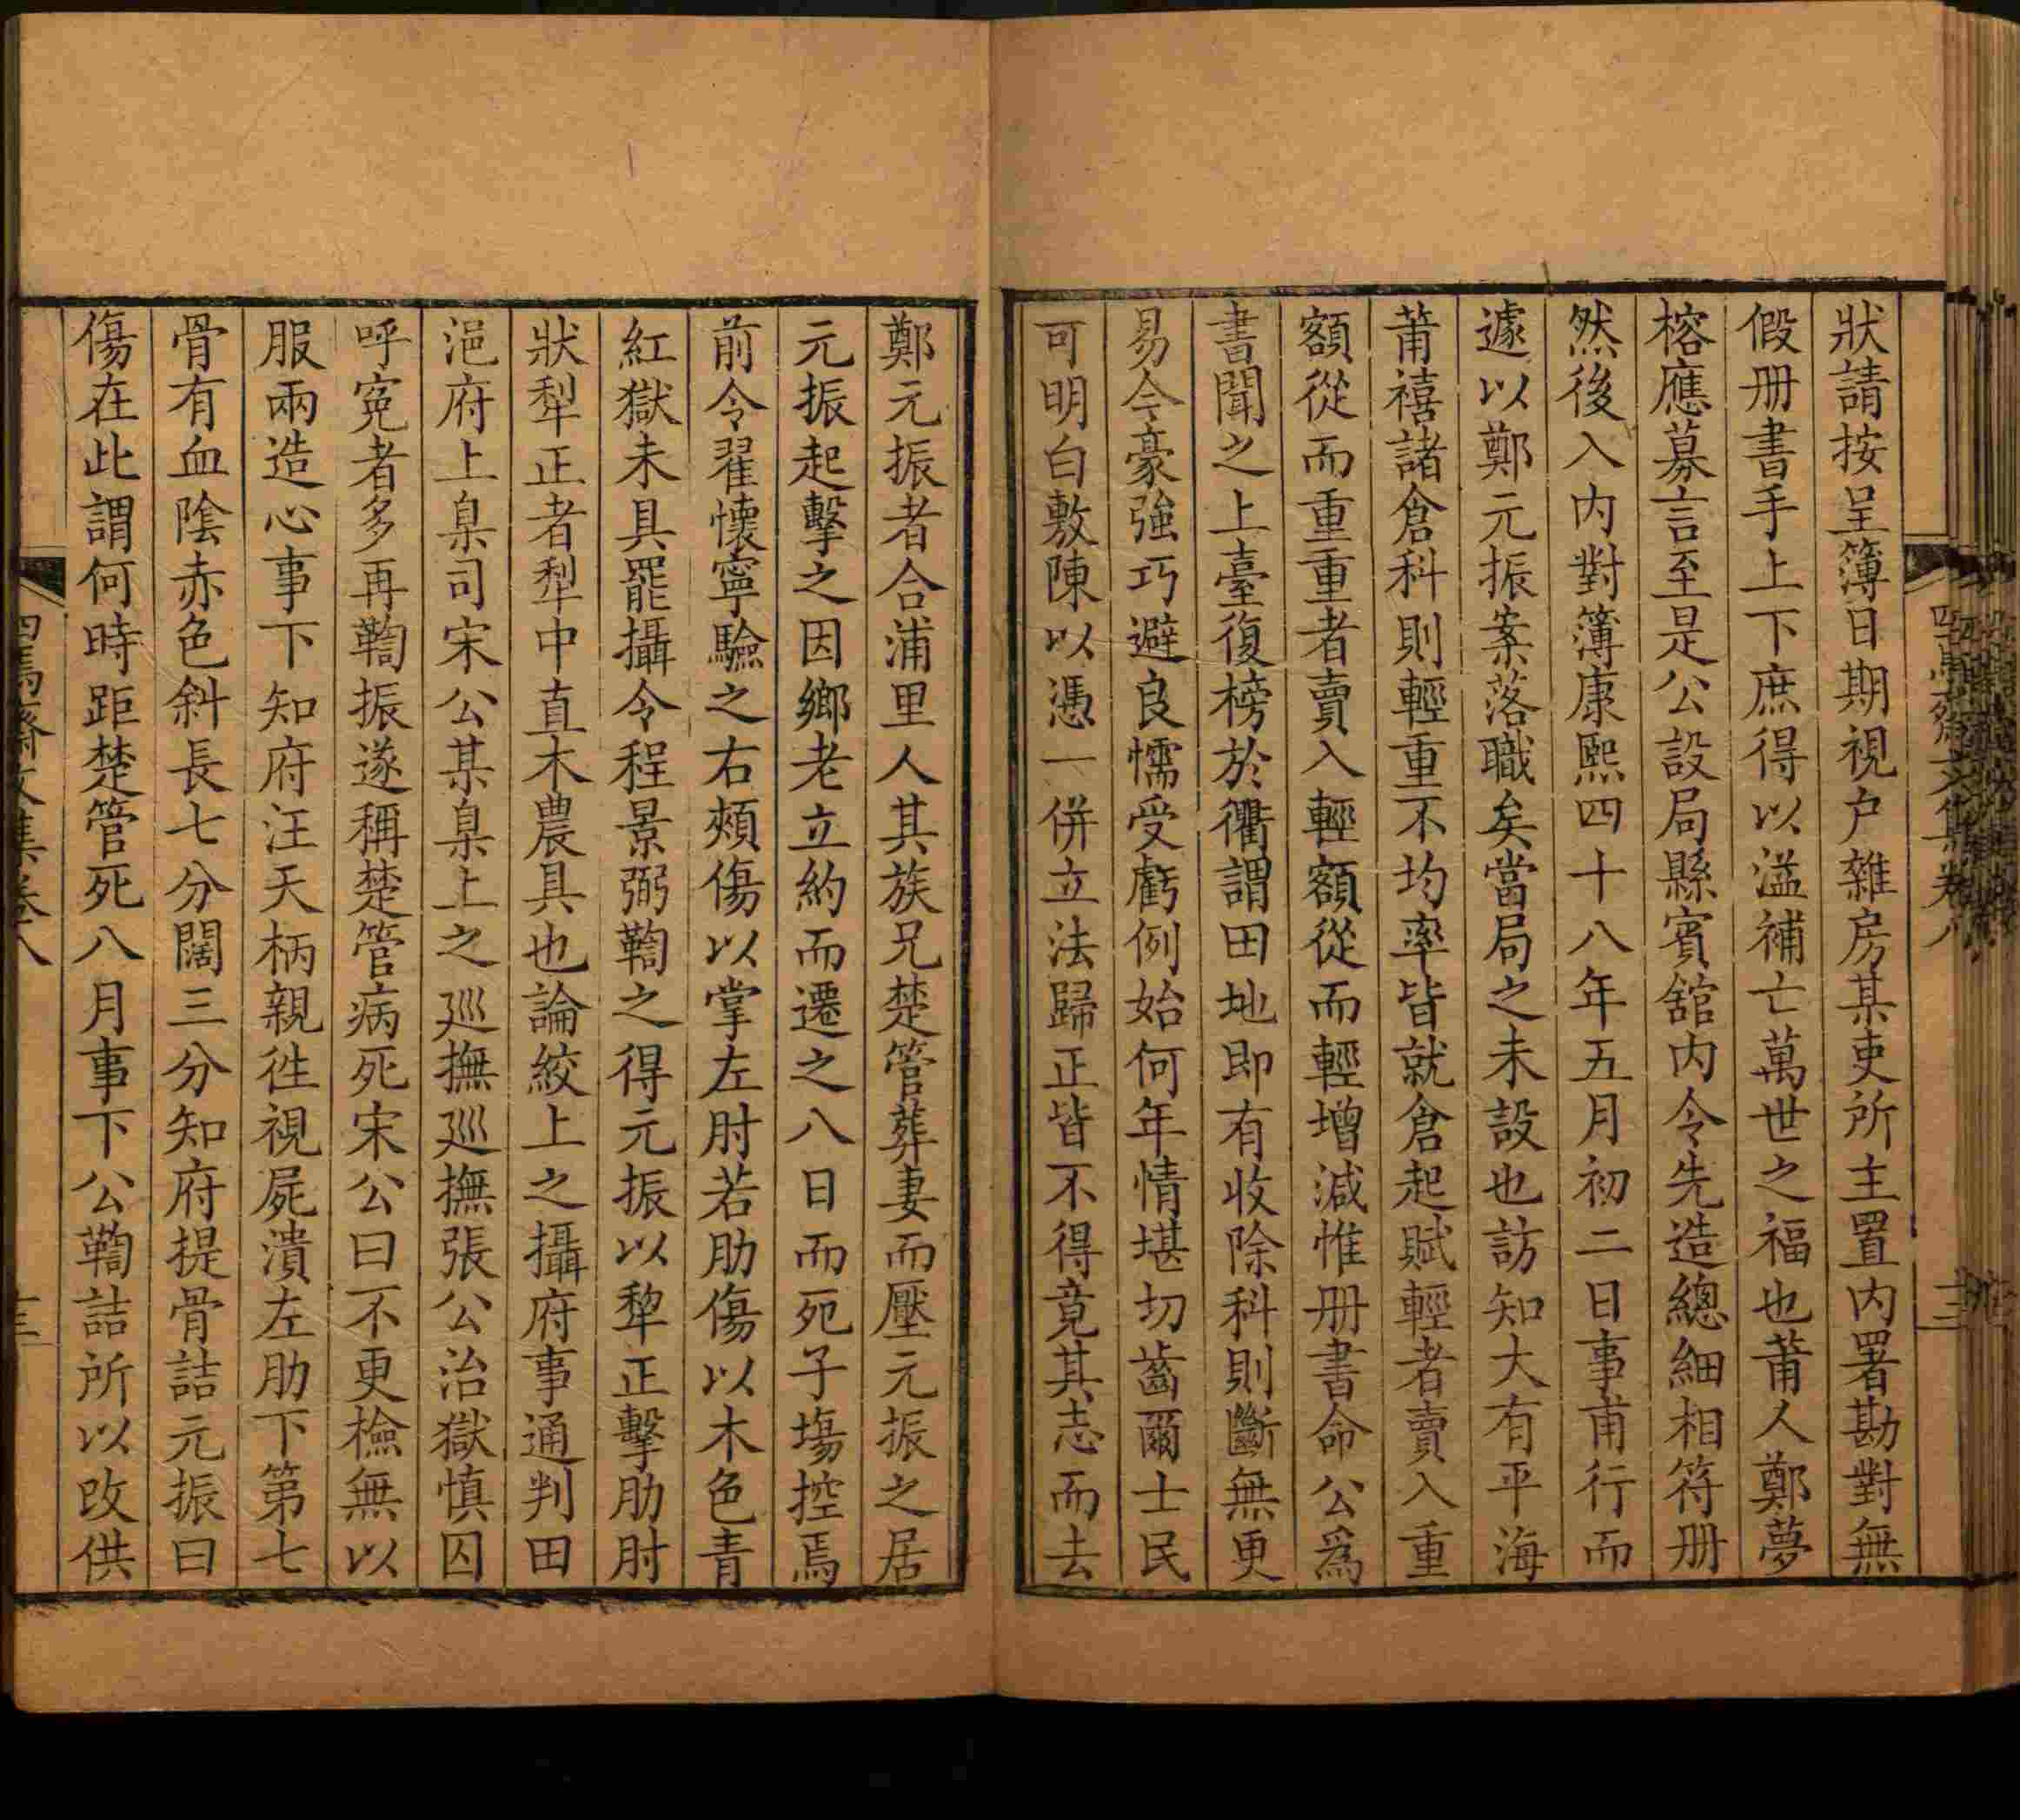 狀請按呈簿日期視户雜房某吏所主置内署勘對無
假册書手上下庶得以溢補亡萬世之福也莆人鄭夢
榕應募言至是公設局縣賓舘内令先造總細相符册
然後入内對簿康熙四十八年五月初二日事甫行而
遽以鄭元振案落職矣當局之未設也訪知大有平海
莆禧諸倉科則輕重不均率皆就倉起賦輕者賣入重
額從而重重者賣入輕額從而輕增減惟册書命公爲
書聞之上臺復榜於衢謂田地即有收除科則斷無更
易今豪強巧避良懦受虧例始何年情堪切齒爾士民
可明白敷陳以憑一併立法歸正皆不得竟其志而去
鄭元振者合浦里人其族兄楚管葬妻而壓元振之居
元振起擊之因鄉老立約而遷之八日而死子塲控焉
前令翟懷寧驗之右頰傷以掌左肘若肋傷以木色青
紅獄未具罷攝令程景弼鞫之得元振以犂正擊肋肘
狀犂正者犂中直木農具也論絞上之攝府事通判田
浥府上臬司宋公某臬上之巡撫巡撫張公治獄慎囚
呼寃者多再鞫振遂稱楚管病死宋公曰不更檢無以
服兩造心事下知府汪天柄親徃視屍潰左肋下第七
骨有血陰赤色斜長七分闊三分知府提骨詰元振曰
傷在此謂何時距楚管死八月事下公鞫詰所以改供
四焉齋文集卷八
十三